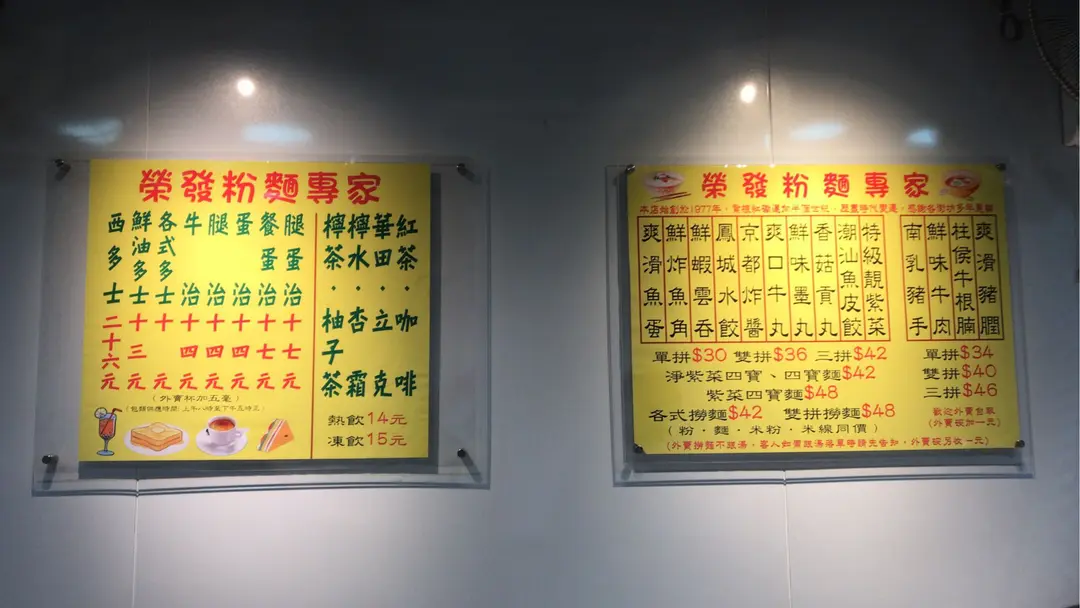 榮發粉麵專家
紅茶・咖啡
華田・立克
檸水・杏霜
檸茶・柚子茶
熱飲14元
凍飲15元
腿蛋治十七元
餐蛋治十七元
蛋治十四元
腿治十四元
牛治十四元
各式多士十元
鮮油多士十三元
西多士二十六元
(外賣杯加五毫)
榮發粉麵專家
本店始創於1977年，
爽滑豬膶
柱侯牛根腩
鮮味牛肉
南乳豬手
單拼$34
雙拼$40
三拼$46
歡迎外賣自取
(外賣碗加一元)
特級靚紫菜
潮汕魚皮餃
香菇貢丸
鮮味墨丸
爽口牛丸
京都炸醬
鳳城水餃
鮮蝦雲吞
鮮炸魚角
爽滑魚蛋
單拼$30 雙拼$36 三拼$42
淨紫菜四寶、四寶麵$42
紫菜四寶麵$48
各式撈麵$42 雙拼撈麵$48
(粉・麵・米粉・米線同價)
(外賣撈麵不跟湯，客人如需跟湯落單時請先告知，外賣碗另收一元)